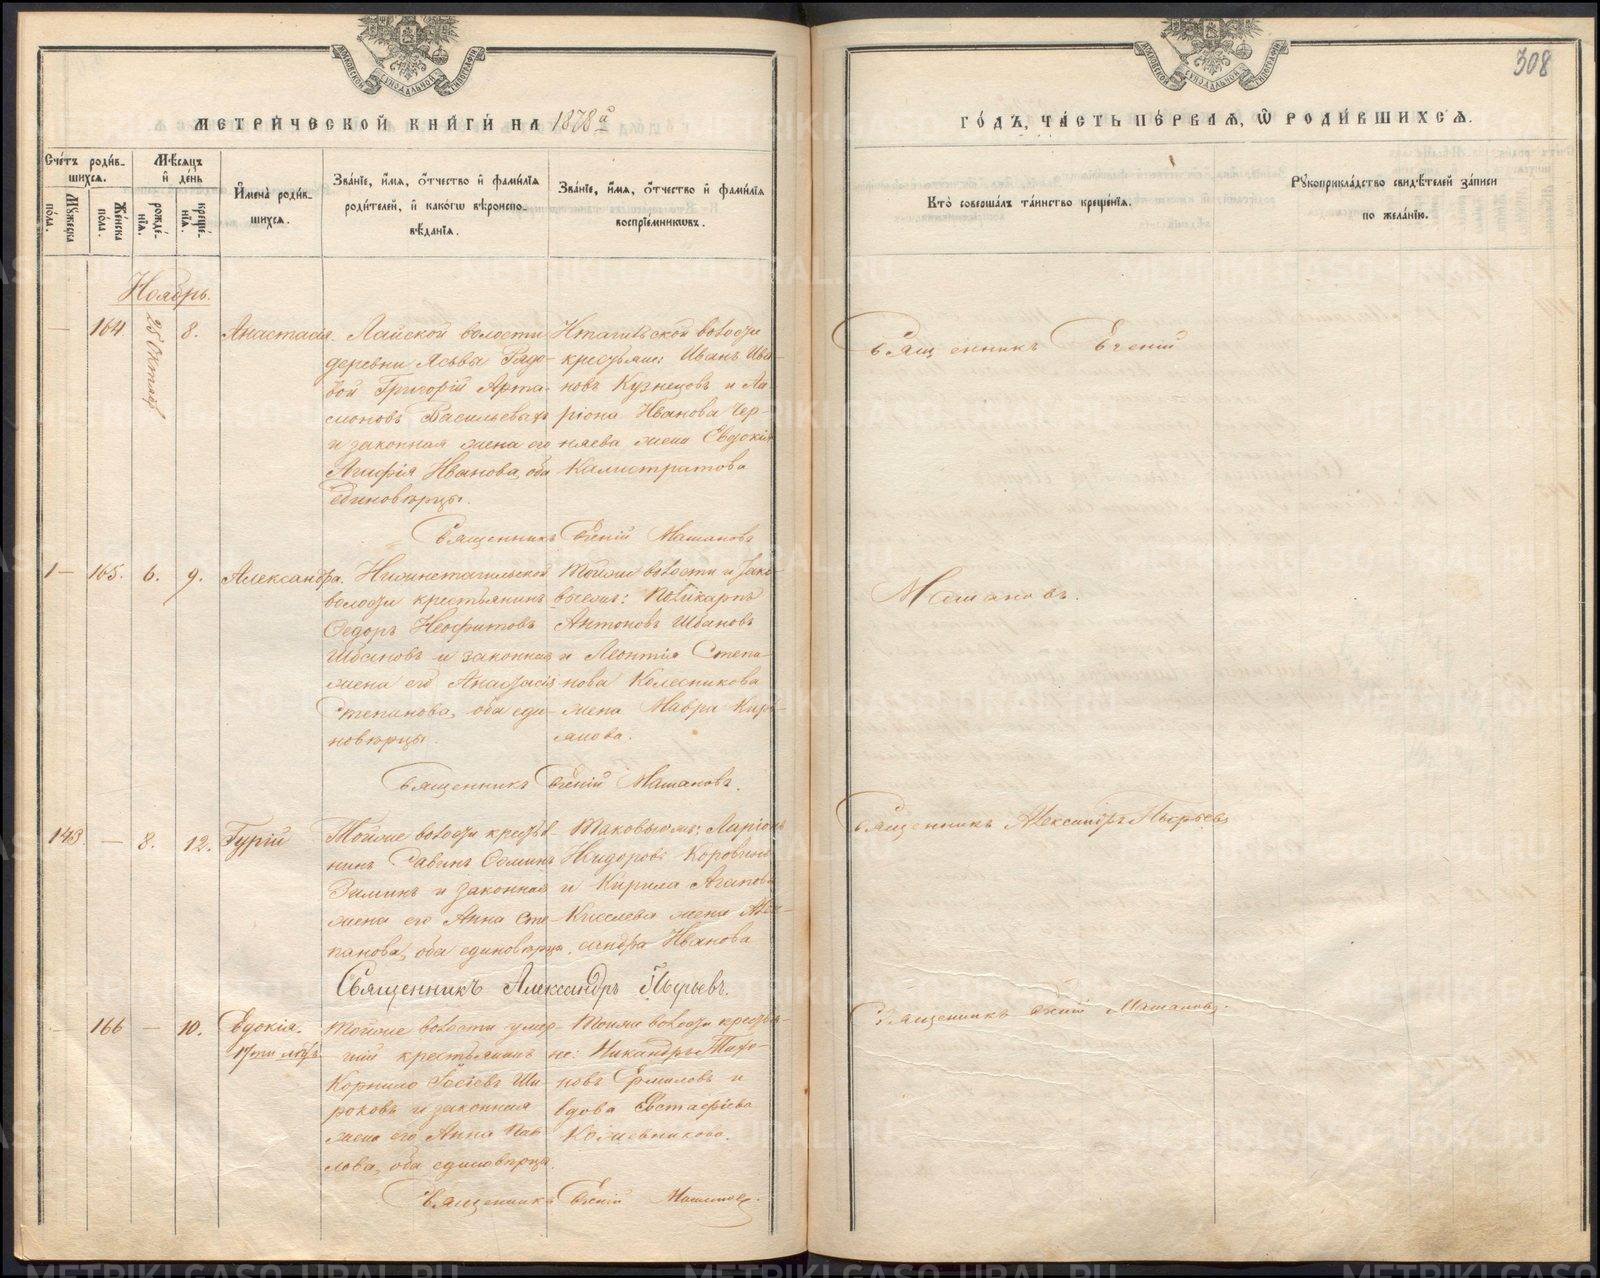 МЕТРИ́ЧЕСКОЙ КНИ́ГИ НА 1878й
Сче́тъ роди́в-
шихся.
Му́жеска
пола.
Же́нска
пола.
Мѣ́сяцъ
и҆ де́нь
рожде́-
нїя.
креще́-
нїя.
И҆мена̀ роди́в-
шихся.
Зва́нїе, и҆́мя, ѻ҆́тчество и҆ фами́лїя
роди́телей, и҆ како́гѡ вѣроиспо-
вѣ́данїя.
Зва́нїе, и҆́мя, ѻ҆́тчество и҆ фами́лїя
воспрїе́мникѡвъ.
Ноябрь.
— 164 25 Октяб 8. Анастасія.
Лайской волости
деревни Лѣвы Рядо-
вой Григорій Арта-
моновъ Васильевыхъ
и законная жена его
Агафія Иванова, оба
единовѣрцы.
Нтагильской волости
крестьяне: Иванъ Ива-
новъ Кузнецовъ и Ла-
ріона Иванова Чер-
няева жена Евдокія
Калистратова
Священникъ Евгеній Машановъ
1— 165. 6. 9. Александра.
Нижнетагильской
волости крестьянинъ
Федоръ Неофитовъ
Шбановъ и законная
жена его Анастасія
Степанова, оба еди-
новѣрцы.
Тойже волости и зако-
Поликарпъ
Антоновъ Шбановъ
и Леонтія Степа-
нова Колесникова
жена Мавра Кир-
лнова.
Священникъ Евгеній Машановъ.
143. — 8. 12. Гурій
Тойже волости крестья-
нинъ Савинъ Фоминъ
Зиминъ и законная
жена его Анна Сте-
панова, оба единовѣрцы.
Таковыежъ: Ларіонъ
Сидоровъ Коровинъ
и Кирила Агапова
Киселева жена Алек-
сандра Иванова
Священникъ Александръ Пырьевъ.
— 166 — 10. Евдокія.
Тойже волости умер-
шій крестьянинъ
Корнило Ши-
роковъ и законная
жена его Анна Пав-
лова, оба единовѣрцы.
Тойже волости крестья-
не: Никандръ Тихо-
новъ Ермиловъ и
вдова Евстафіева
Кожевникова.
Священникъ Евгеній Машановъ.
308
ГО́ДЪ, ЧА́СТЬ ПЕ́РВАЯ, Ѡ҆ РОДИ́ВШИХСЯ.
Кто̀ соверша́лъ та́инство креще́нїя.
Рꙋкоприкла́дство свидѣ́телей за́писи
по жела́нїю.
Священникъ Евгеній
Машановъ.
Священникъ Александръ Пырьевъ
Священникъ Евгеній Машановъ.